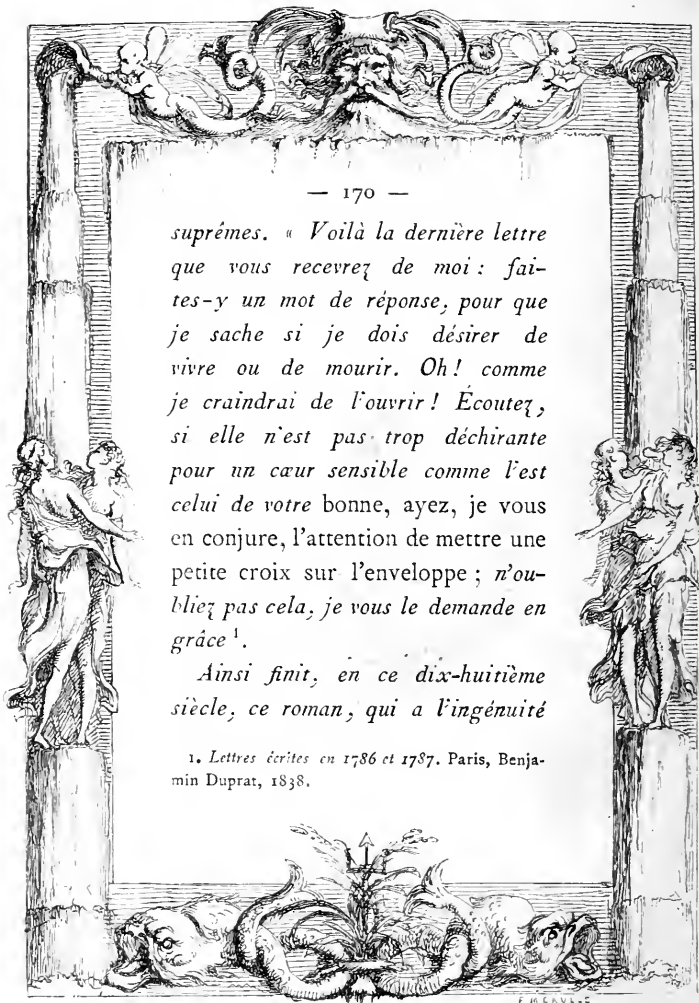 — 170 —
suprêmes. « Voilà la dernière lettre
que vous recevrez de moi : fai-
tes-y un mot de réponse, pour que
je sache si je dois désirer de
vivre ou de mourir. Oh ! comme
je craindrai de l'ouvrir ! Écoutez,
si elle n'est pas trop déchirante
pour un cœur sensible comme l'est
celui de votre bonne, ayez, je vous
en conjure, l'attention de mettre une
petite croix sur l'enveloppe ; n'ou-
bliez pas cela, je vous le demande en
grâce 1.
Ainsi finit, en ce dix-huitième
siècle, ce roman, qui a l'ingénuité
1. Lettres écrites en 1786 et 1787. Paris, Benja-
min Duprat, 1838.